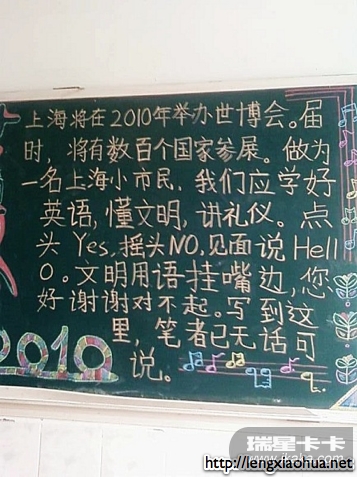 上海将在2010年举办世博会。届
时，将有数百个国家参展。做为
一名上海小市民，我们应学好
英语，懂文明，讲礼仪。点
头Yes，摇头NO，见面说Hell
O。文明用语挂嘴边，您
好谢谢对不起。写到这
里，笔者已无话可
说。
2010
瑞星卡卡
www.ikaka.com
http://lengxiaohua.net